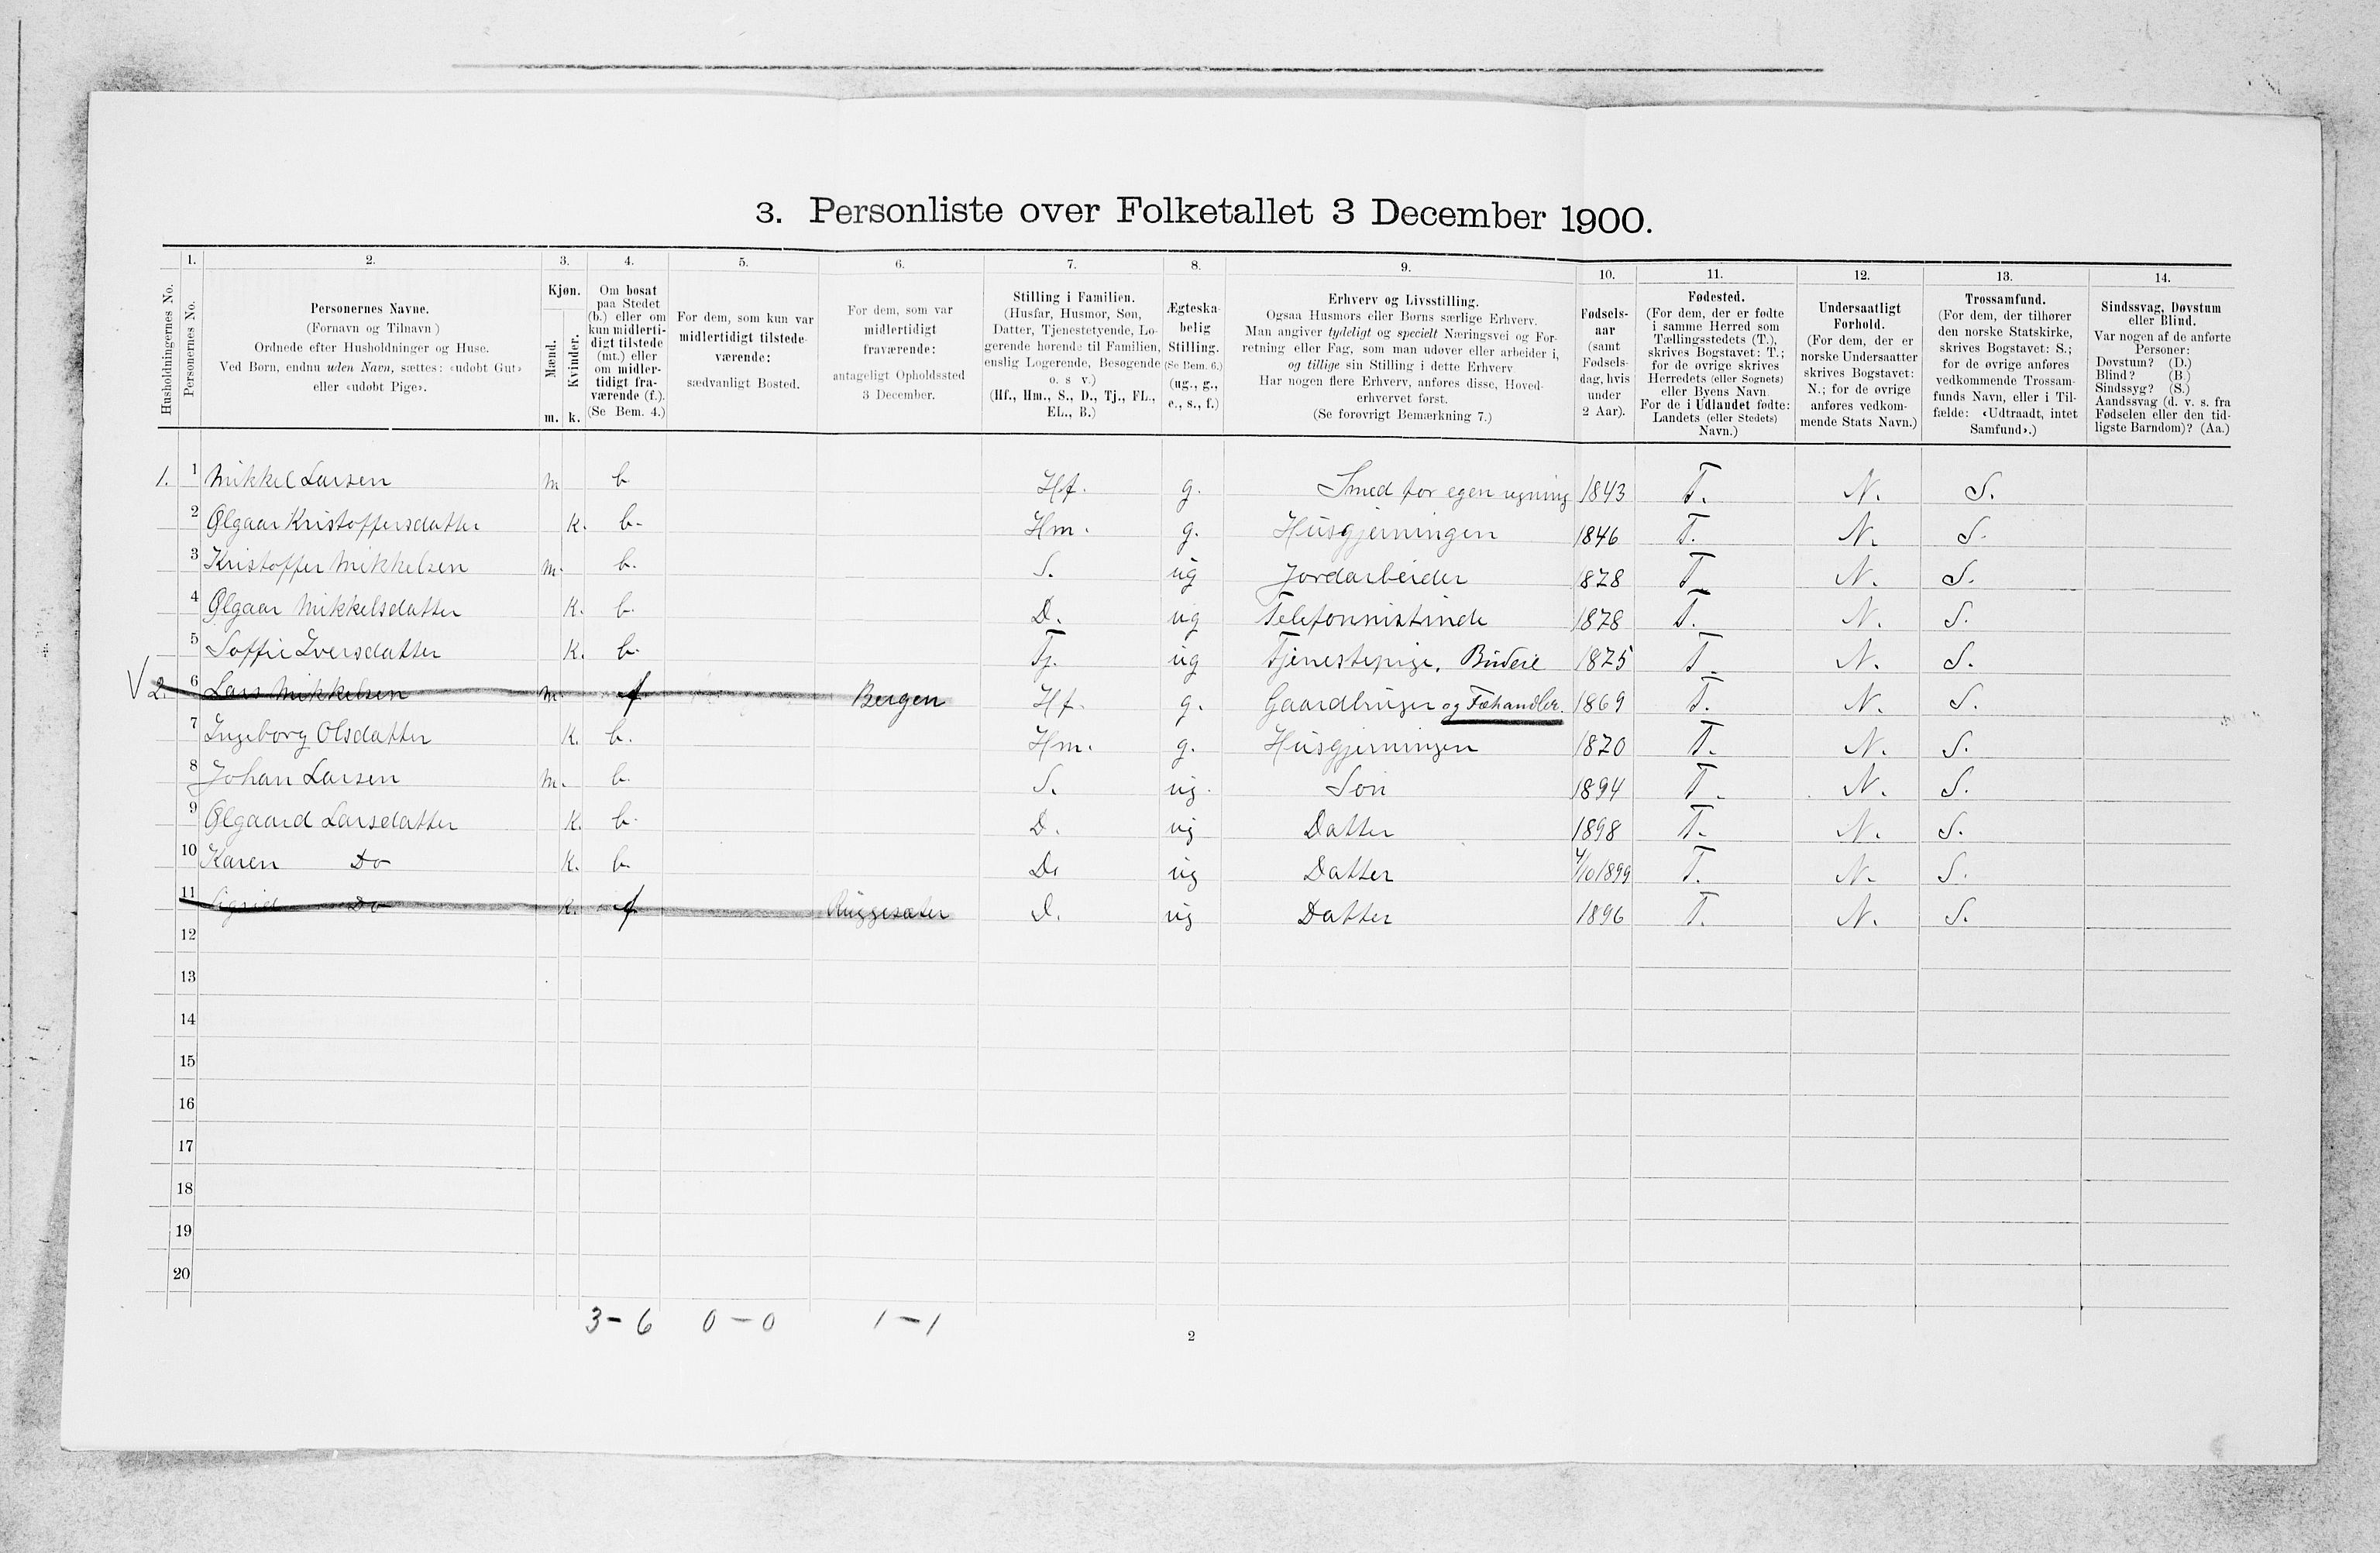 3. Personliste over Folketallet 3 December 1900.
1. 2. 3. 4. 5. 6. 7. 8. 9. 10. 11. 12. 13. 14.
Husholdningernes No.
Personernes No.
Personernes Navne.
(Fornavn og Tilnavn)
Ordnede efter Husholdninger og Huse.
Ved Børn, endnu uden Navn, sættes: «udøbt Gut»
eller «udøbt Pige».
Kjøn.
Mænd.
Kvinder.
m. k.
Om bosat
paa Stedet
(b.) eller om
kun midlerti-
digt tilstede
(mt.) eller
om midler-
tidigt fra-
værende (f.).
(Se Bem. 4.)
For dem, som kun var
midlertidigt tilstede-
værende:
sædvanligt Bosted.
For dem, som var
midlertidigt
fraværende:
antageligt Opholdssted
3 December.
Stilling i Familien.
(Husfar, Husmor, Søn,
Datter, Tjenestetyende, Lo-
gerende hørende til Familien,
enslig Logerende, Besøgende
o. s v.)
(Hf., Hm., S., D., Tj., FL.,
EL., B.)
Ægteska-
belig
Stilling.
(Se Bem. 6.)
(ug., g.,
e., s., f.)
Erhverv og Livsstilling.
Ogsaa Husmors eller Børns særlige Erhverv.
Man angiver tydeligt og specielt Næringsvei og For-
retning eller Fag, som man udøver eller arbeider i,
og tillige sin Stilling i dette Erhverv
Har nogen flere Erhverv, anføres disse, Hoved-
erhvervet først.
(Se forøvrigt Bemærkning 7.)
Fødsels-
aar
(samt
Fødsels-
dag, hvis
under
2 Aar).
Fødested.
(For dem, der er fødte
i samme Herred som
Tællingsstedets (T.),
skrives Bogstavet: T.;
for de øvrige skrives
Herredets (eller Sognets)
eller Byens Navn
For de i Udlandet fødte:
Landets (eller Stedets)
Navn.)
Undersaatligt
Forhold.
(For dem, der er
norske Undersaatter
skrives Bogstavet:
N.; for de øvrige
anføres vedkom-
mende Stats Navn.)
Trossamfund.
(For dem, der tilhører
den norske Statskirke,
skrives Bogstavet: S.;
for de øvrige anføres
vedkommende Trossam-
funds Navn, eller i Til-
fælde: «Udtraadt, intet
Samfund».)
Sindssvag, Døvstum
eller Blind.
Var nogen af de anførte
Personer:
Døvstum? (D.)
Blind? (B.)
Sindssyg? (S.)
Aandssvag (d. v. s. fra
Fødselen eller den tid-
ligste Barndom)? (Aa.)
1. 1 Mikkel Larsen m b. Hf. g. Smed for egen regning 1843 T. N. S.
2 Ølgaar Kristoffersdatter k. b. Hm. g. Husgjerningen 1846 T. N. S.
3 Kristoffer Mikkelsen m. b. S. ug Jordarbeider 1878 T. N. S.
4 Ølgaar Mikkelsdatter k. b. D. ug Telefonnistinde 1878 T. N. S.
5 Soffie Iversdatter k. b. Tj. ug Tjenestepige, Budeie 1875 T. N. S.
V 2. 6 Lars Mikkelsen m. f Bergen Hf. g. Gaardbruger og Fæhandler. 1869 T. N. S.
7 Ingeborg Olsdatter k. b. Hm. g. Husgjerningen 1870 T. N. S.
8 Johan Larsen m. b. S. ug. Søn 1894 T. N. S.
9 Ølgaard Larsdatter k. b. D. ug Datter 1898 T. N. S.
10 Karen Do k. b. D. ug Datter 4/10 1899 T. N. S.
11 Sigrid Do k. f Ruggesæter D. ug Datter 1896 T. N. S.
12
13
14
15
16
17
18
19
20
3 - 6 0 - 0 1 - 1
2